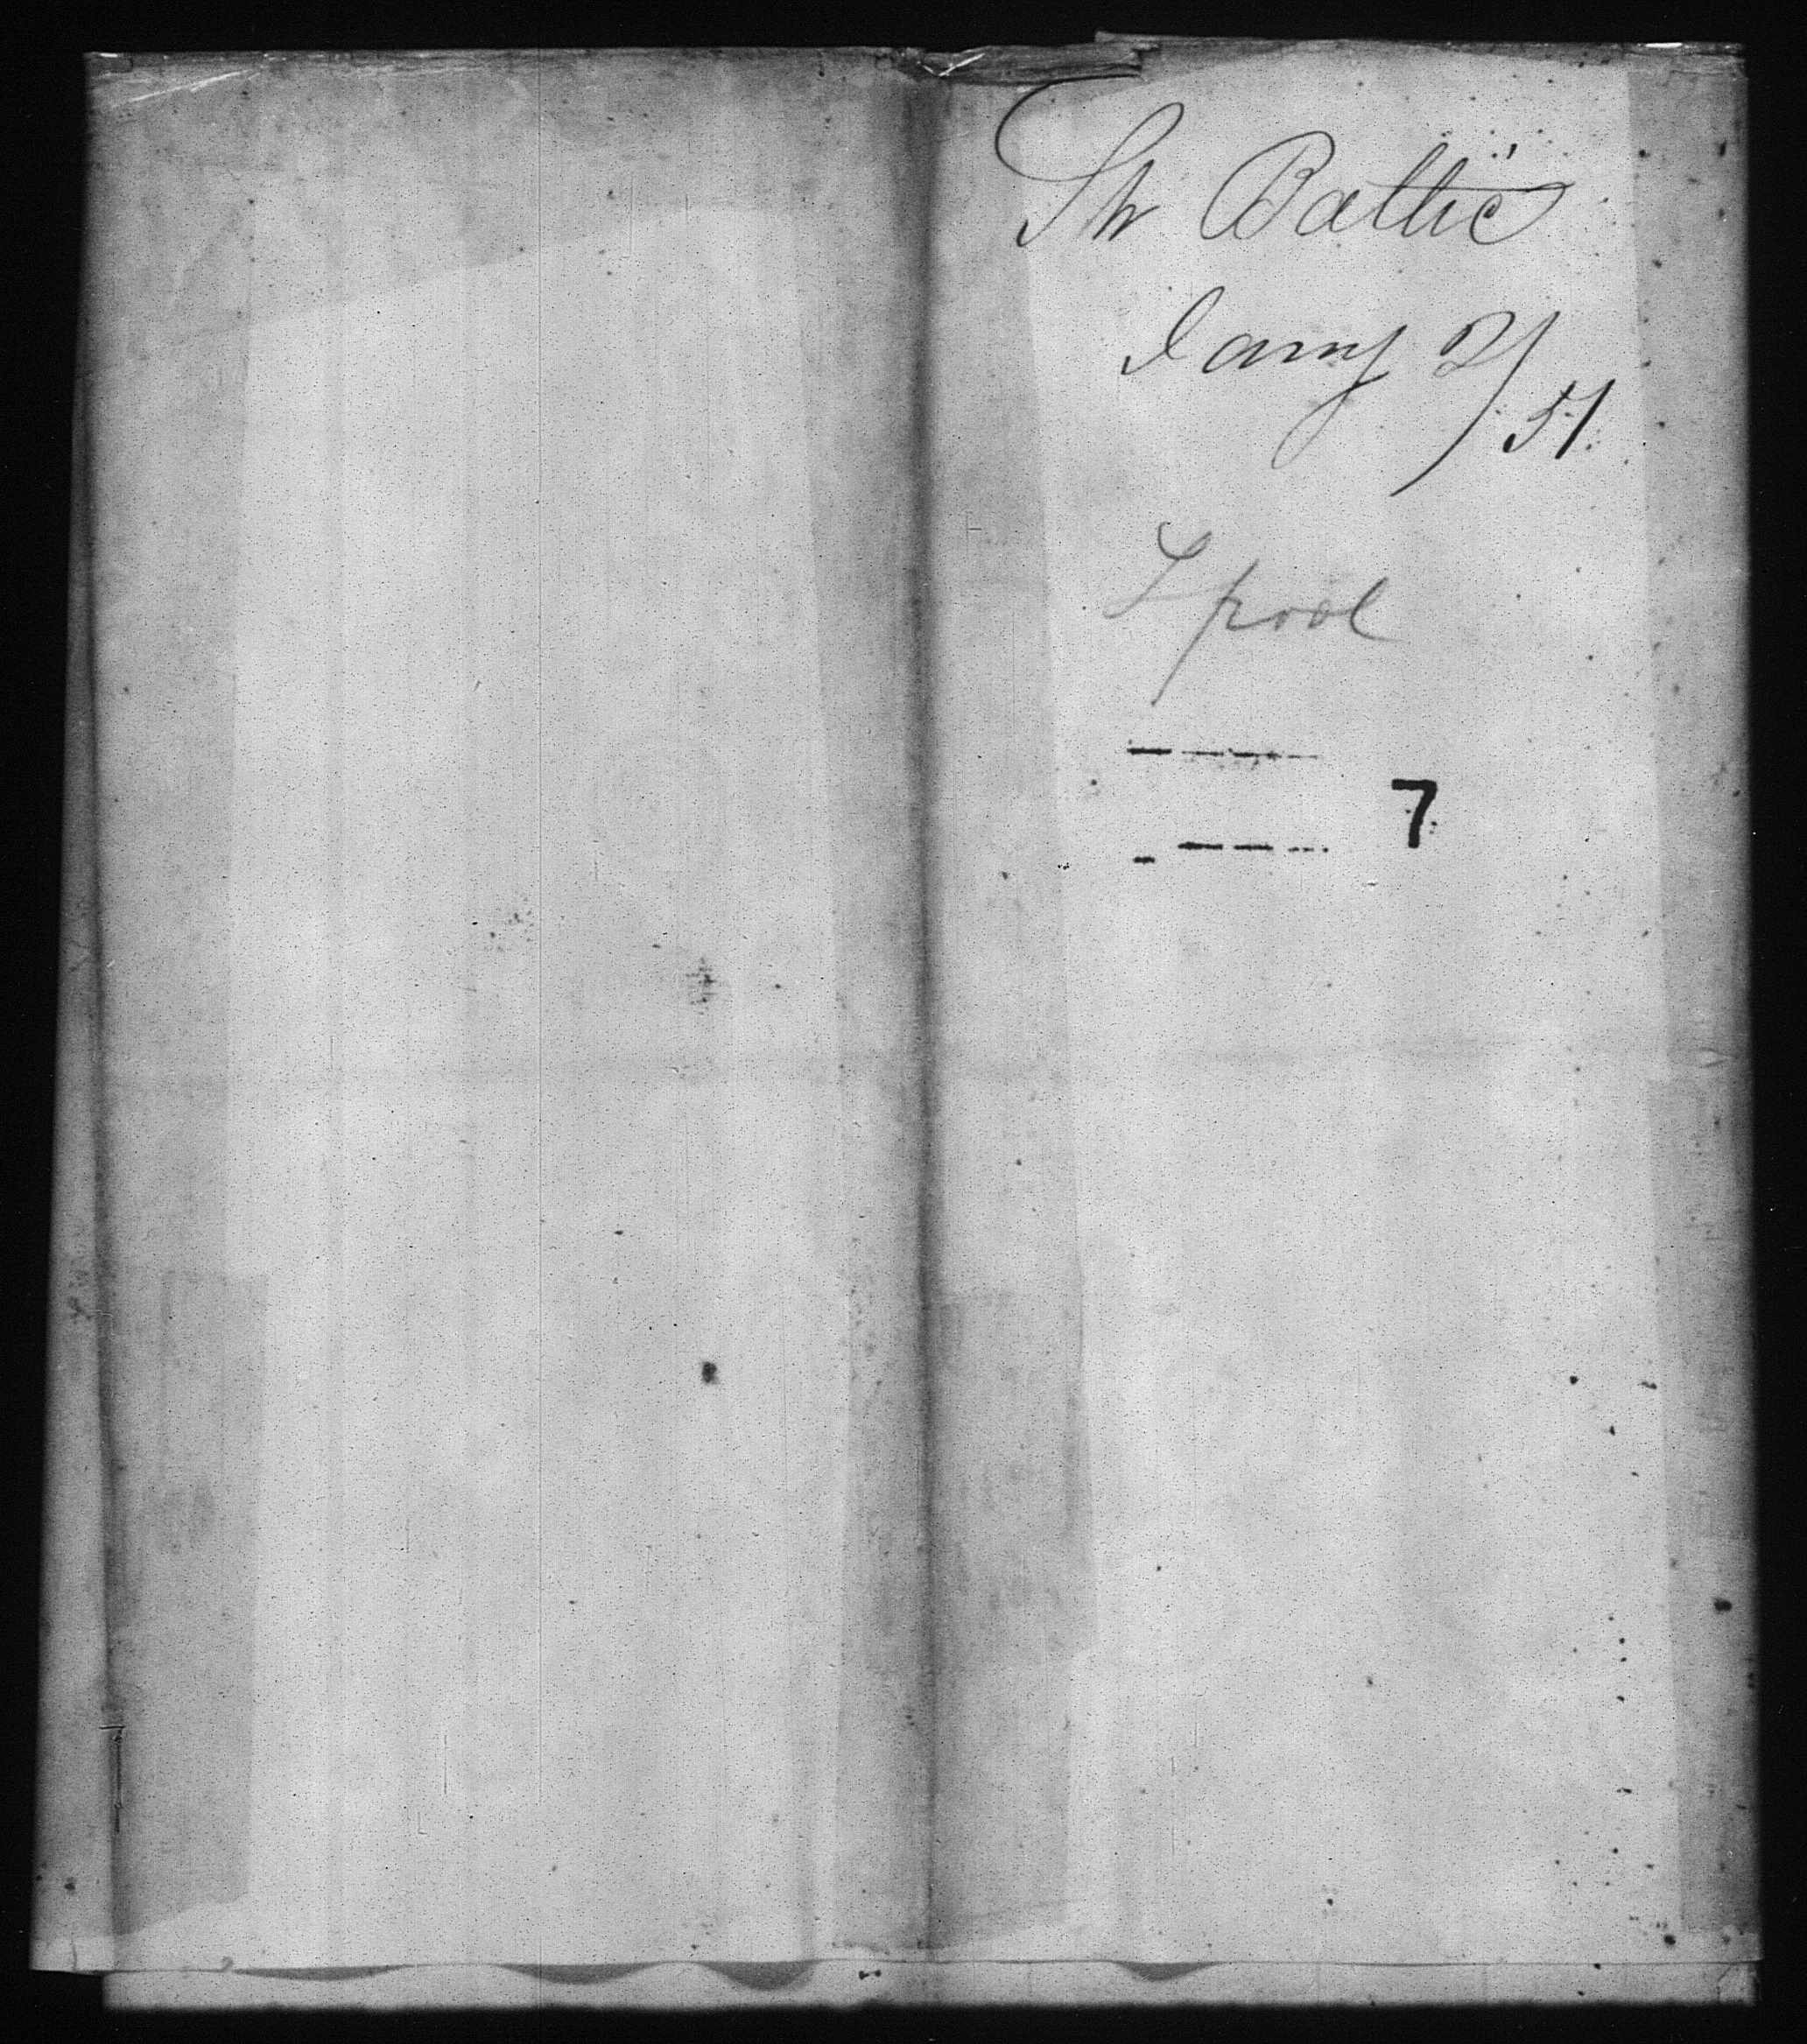 Str Baltic
Jany 2/51
Lpool
7